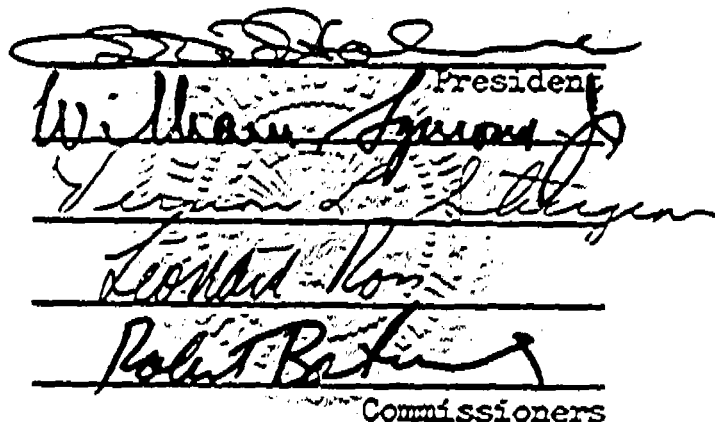 President
William Symons Jr
Vernon L. Sturgeon
Leonard Ross
Robert Bat
Commissioners